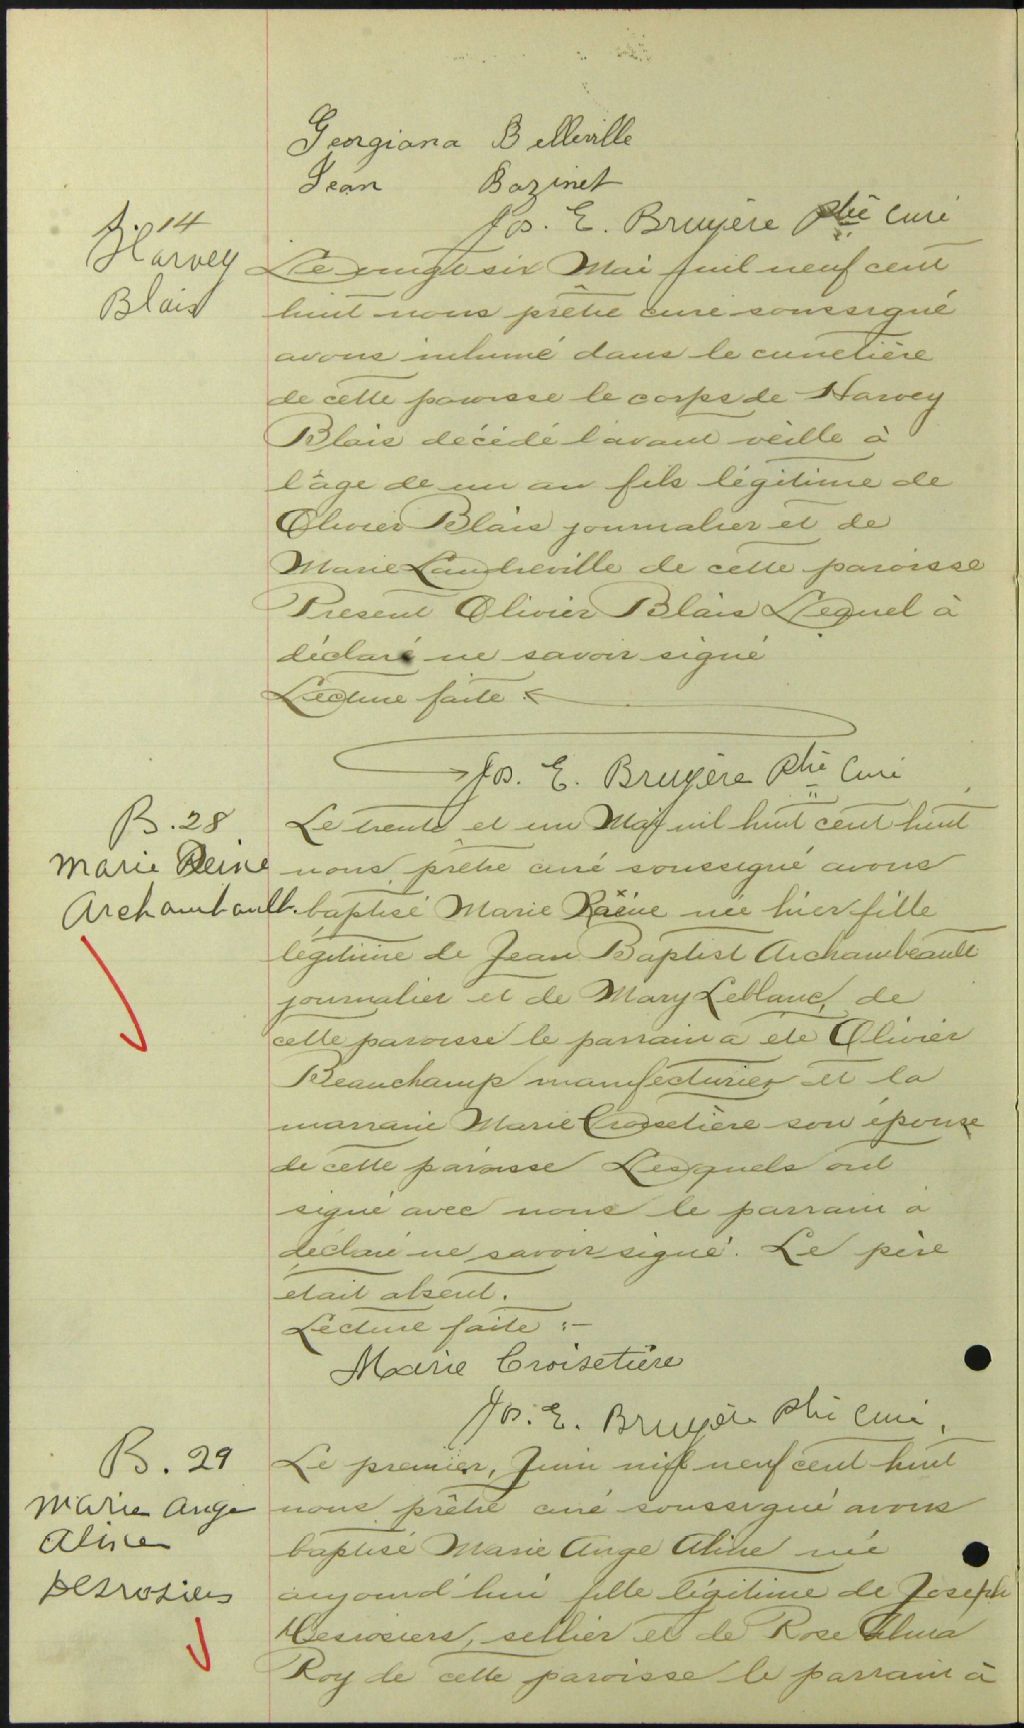 Georgiana Belleville
Jean Bazinet
Jos. E. Bruyère ptre curé
S. 14
Harvey
Blais
Le vingt six Mai mil neuf cent
huit nous prêtre curé soussigné
avons inhumé dans le cimetière
de cette paroisse le corps de Harvey
Blais décédé l'avant veille à
l'âge de un an fils légitime de
Olivier Blais journalier et de
Marie Landreville de cette paroisse
Present Olivier Blais Lequel à
déclaré ne savoir signé
Lecture faite
Jos. E. Bruyère ptre curé
B. 28
Marie Reine
Archambault.
Le trente et un Mai mil huit cent huit
nous prêtre curé soussigné avons
baptisé Marie Reine née hier fille
légitime de Jean Baptist Archambeault
journalier et de Mary Leblanc, de
cette paroisse le parrain a été Olivier
Beauchamp manufacturier et la
marraine Marie Croisetière son épouse
de cette paroisse Lesquels ont
signé avec nous le parrain a
déclaré ne savoir signé. Le père
était absent.
Lecture faite :-
Marie Croisetière
Jos. E. Bruyère ptre curé.
B. 29
Marie Ange
Aline
Desrosiers
Le premier, Juin mil neuf cent huit
nous prêtre curé soussigné avons
baptisé Marie Ange Aline née
aujourd'hui fille légitime de Joseph
Desrosiers, sellier et de Rose Alma
Roy de cette paroisse le parrain à